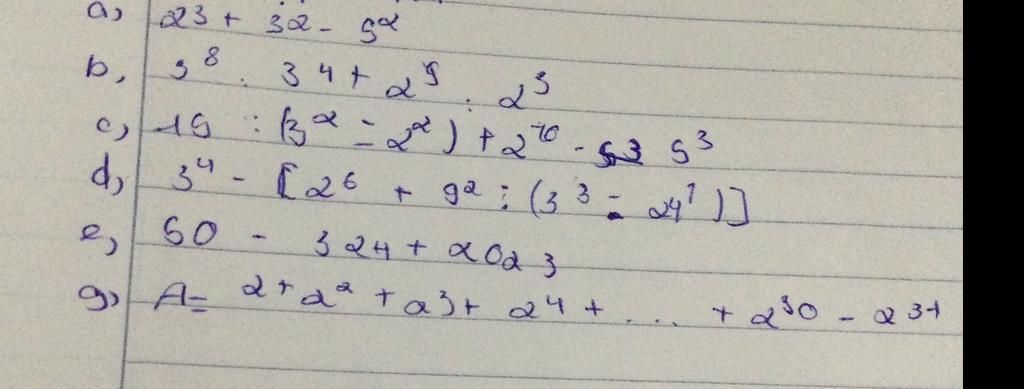 a, 23 + 32 - 5²
b, 3⁸ . 34 + 2⁵ . 2³
c, 15 : (3² - 2²) + 2¹⁰ - 5³
d, 3⁴ - [2⁶ + 9² : (3³ - 24¹)]
e, 50 - 324 + 2023
g, A = 2 + 2² + 2³ + 2⁴ + .... + 2³⁰ - 2³¹